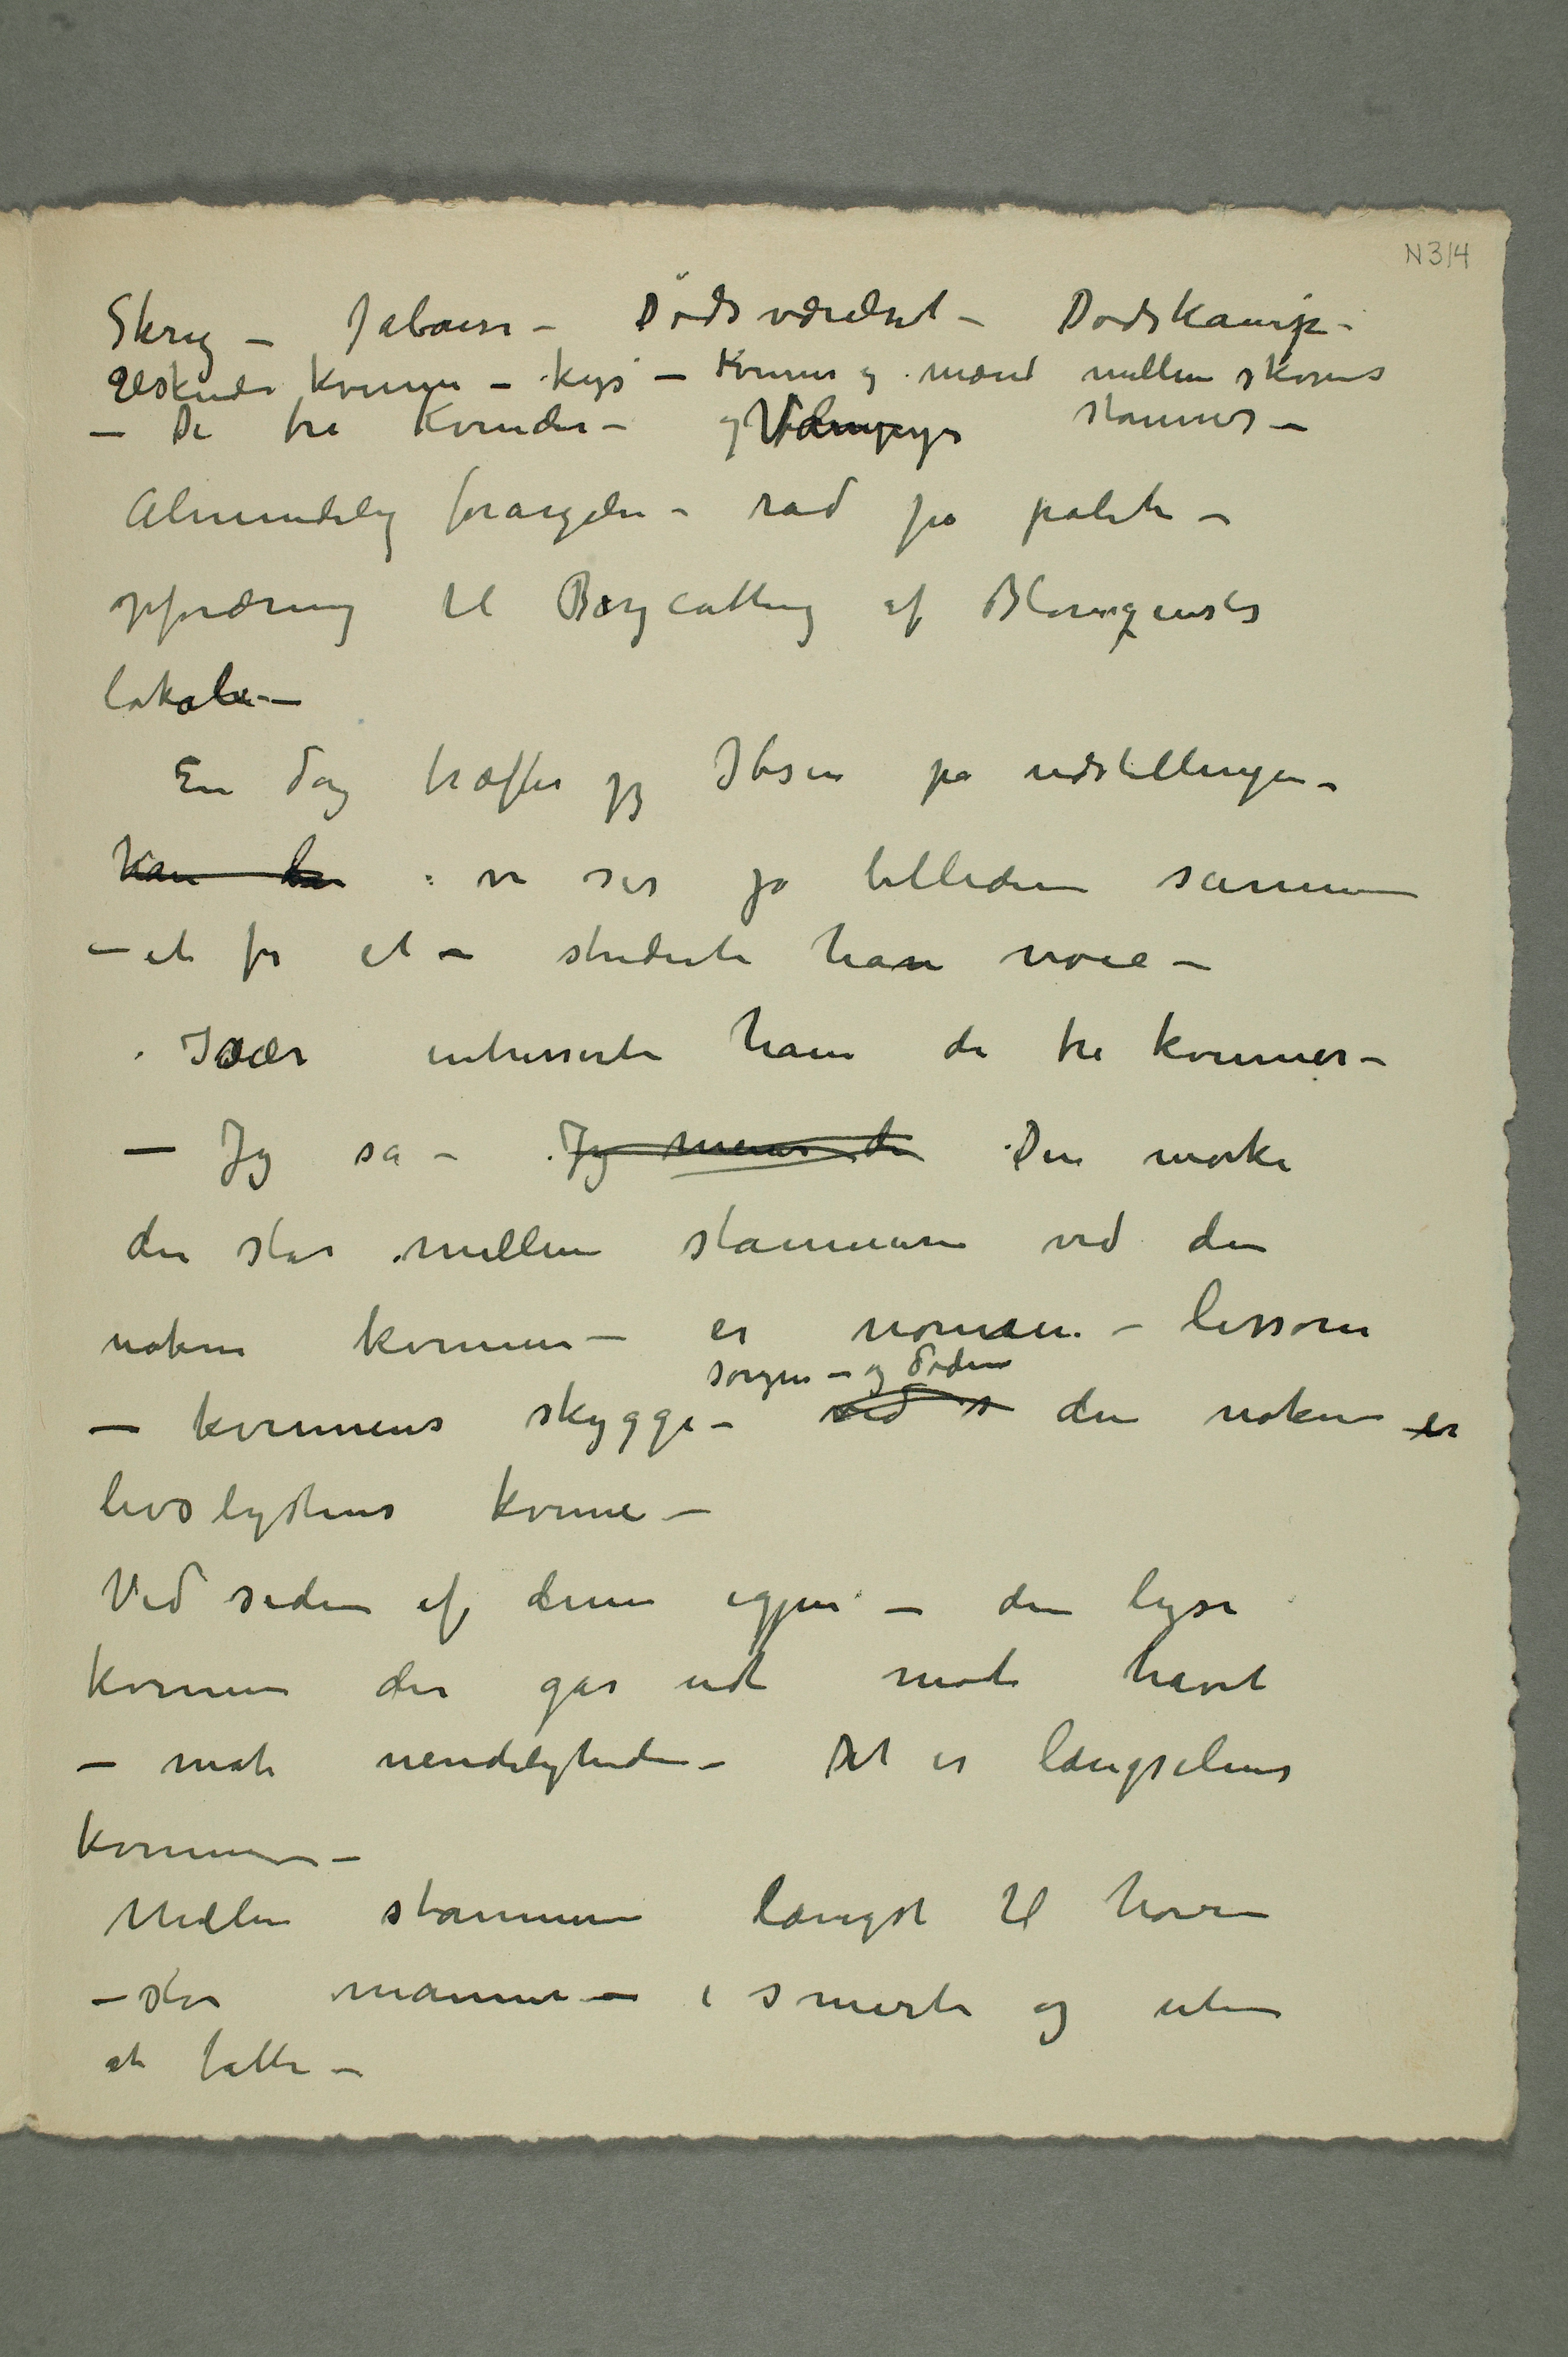 N 314
Skrig – Jalousi – Dødsværelset – Dødskamp –
Elskende kvinne – kys – Kvinner og mænd mellem skovens
– De tre Kvinder – og Vampyr stammer –
Almindelig forargelse – råd på politi –
opfordring til Boycatting af Blomqvists
lokale –
En dag træffer jeg Ibsen på udstillingen –
Han da vi ser på billederne sammen
– et for et – studerte han nøie –
Især intresserte ham de tre kvinner –
– Jeg sa – Jeg mener den Den mørke
der står mellem stammerne ved den
nøkne kvinnen – er nonnen – lissom
sorgen – og døden
– kvinnens skygge – ved s den nøkne er
livslystens kvinne –
Ved siden af denne igjen – den lyse
kvinnen der går ud mot havet
– mot uendeligheden – Det er længselens
kvinne –
Mellem stammerne længst til høire
– står mannen – i smerte og uten
at fatte –